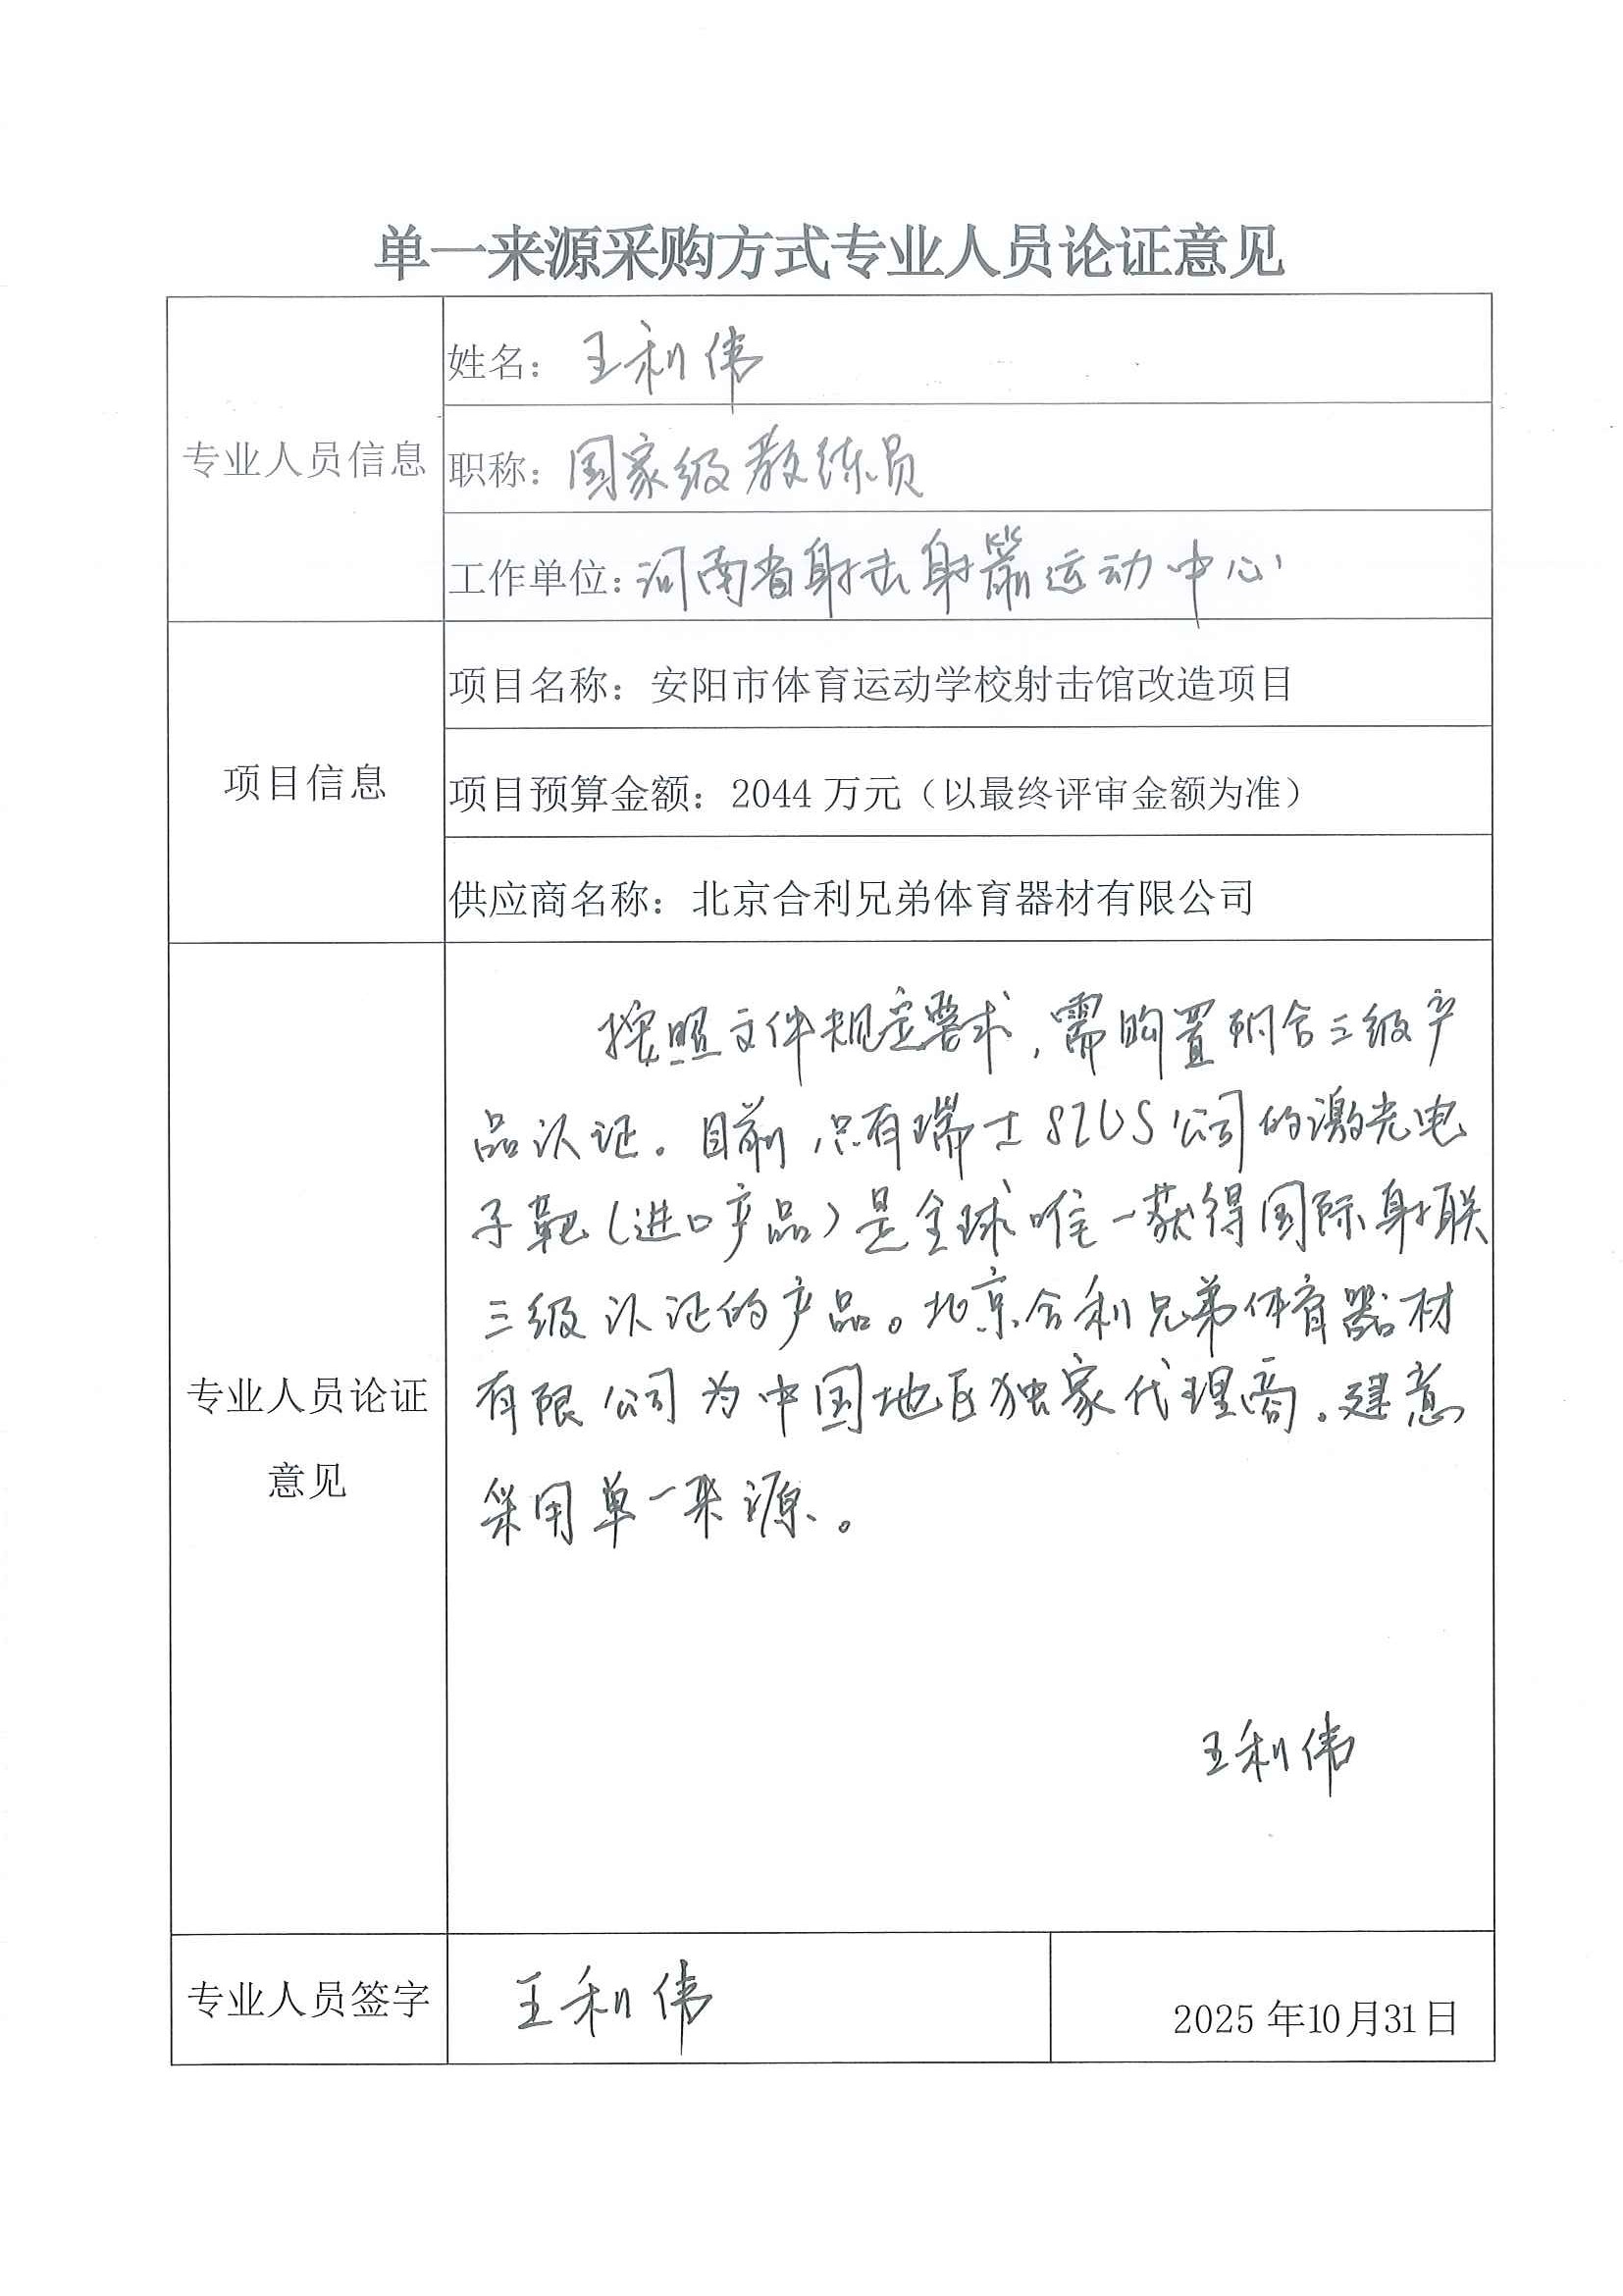 单一来源采购方式专业人员论证意见
专业人员信息
姓名：王利伟
职称：国家级教练员
工作单位：河南省射击射箭运动中心
项目信息
项目名称：安阳市体育运动学校射击馆改造项目
项目预算金额：2044 万元（以最终评审金额为准）
供应商名称：北京合利兄弟体育器材有限公司
专业人员论证
意见
按照文件规定要求，需购置符合三级产
品认证。目前，只有瑞士SIUS公司的激光电
子靶（进口产品）是全球唯一获得国际射联
三级认证的产品。北京合利兄弟体育器材
有限公司为中国地区独家代理商。建意
采用单一来源。
王利伟
专业人员签字
王利伟
2025 年10月31日